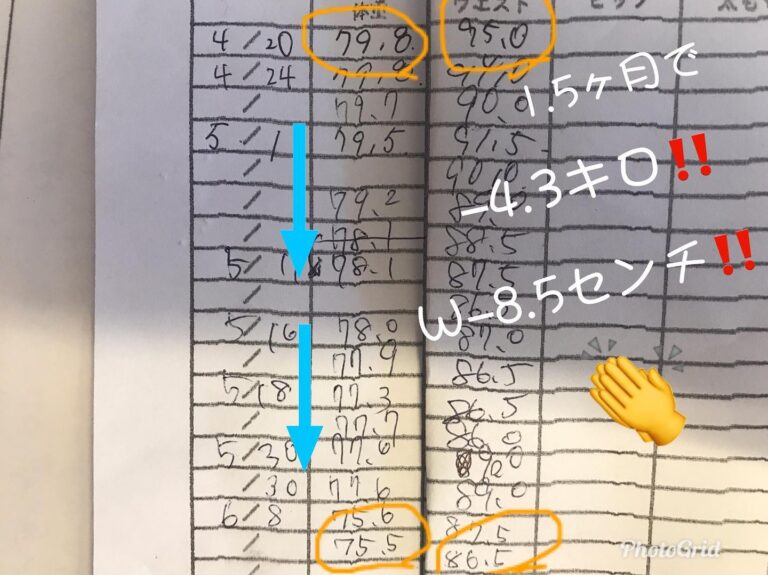 体重 ウエスト ヒップ
4/20 79.8 95.0
4/24 79.8
/ 79.7 90.0
5/1 79.5 91.5
/ 90.0
/ 79.2
/ 78.1 88.5
5/11 78.1 87.5
/
5/16 78.0 87.0
/ 77.9 86.5
5/18 77.3 86.5
/ 77.7 86.0
5/30 77.6
/30 77.6 89.0
6/8 75.6 87.5
75.5 86.5
1.5ヶ月で
-4.3キロ‼
W-8.5センチ‼
PhotoGrid